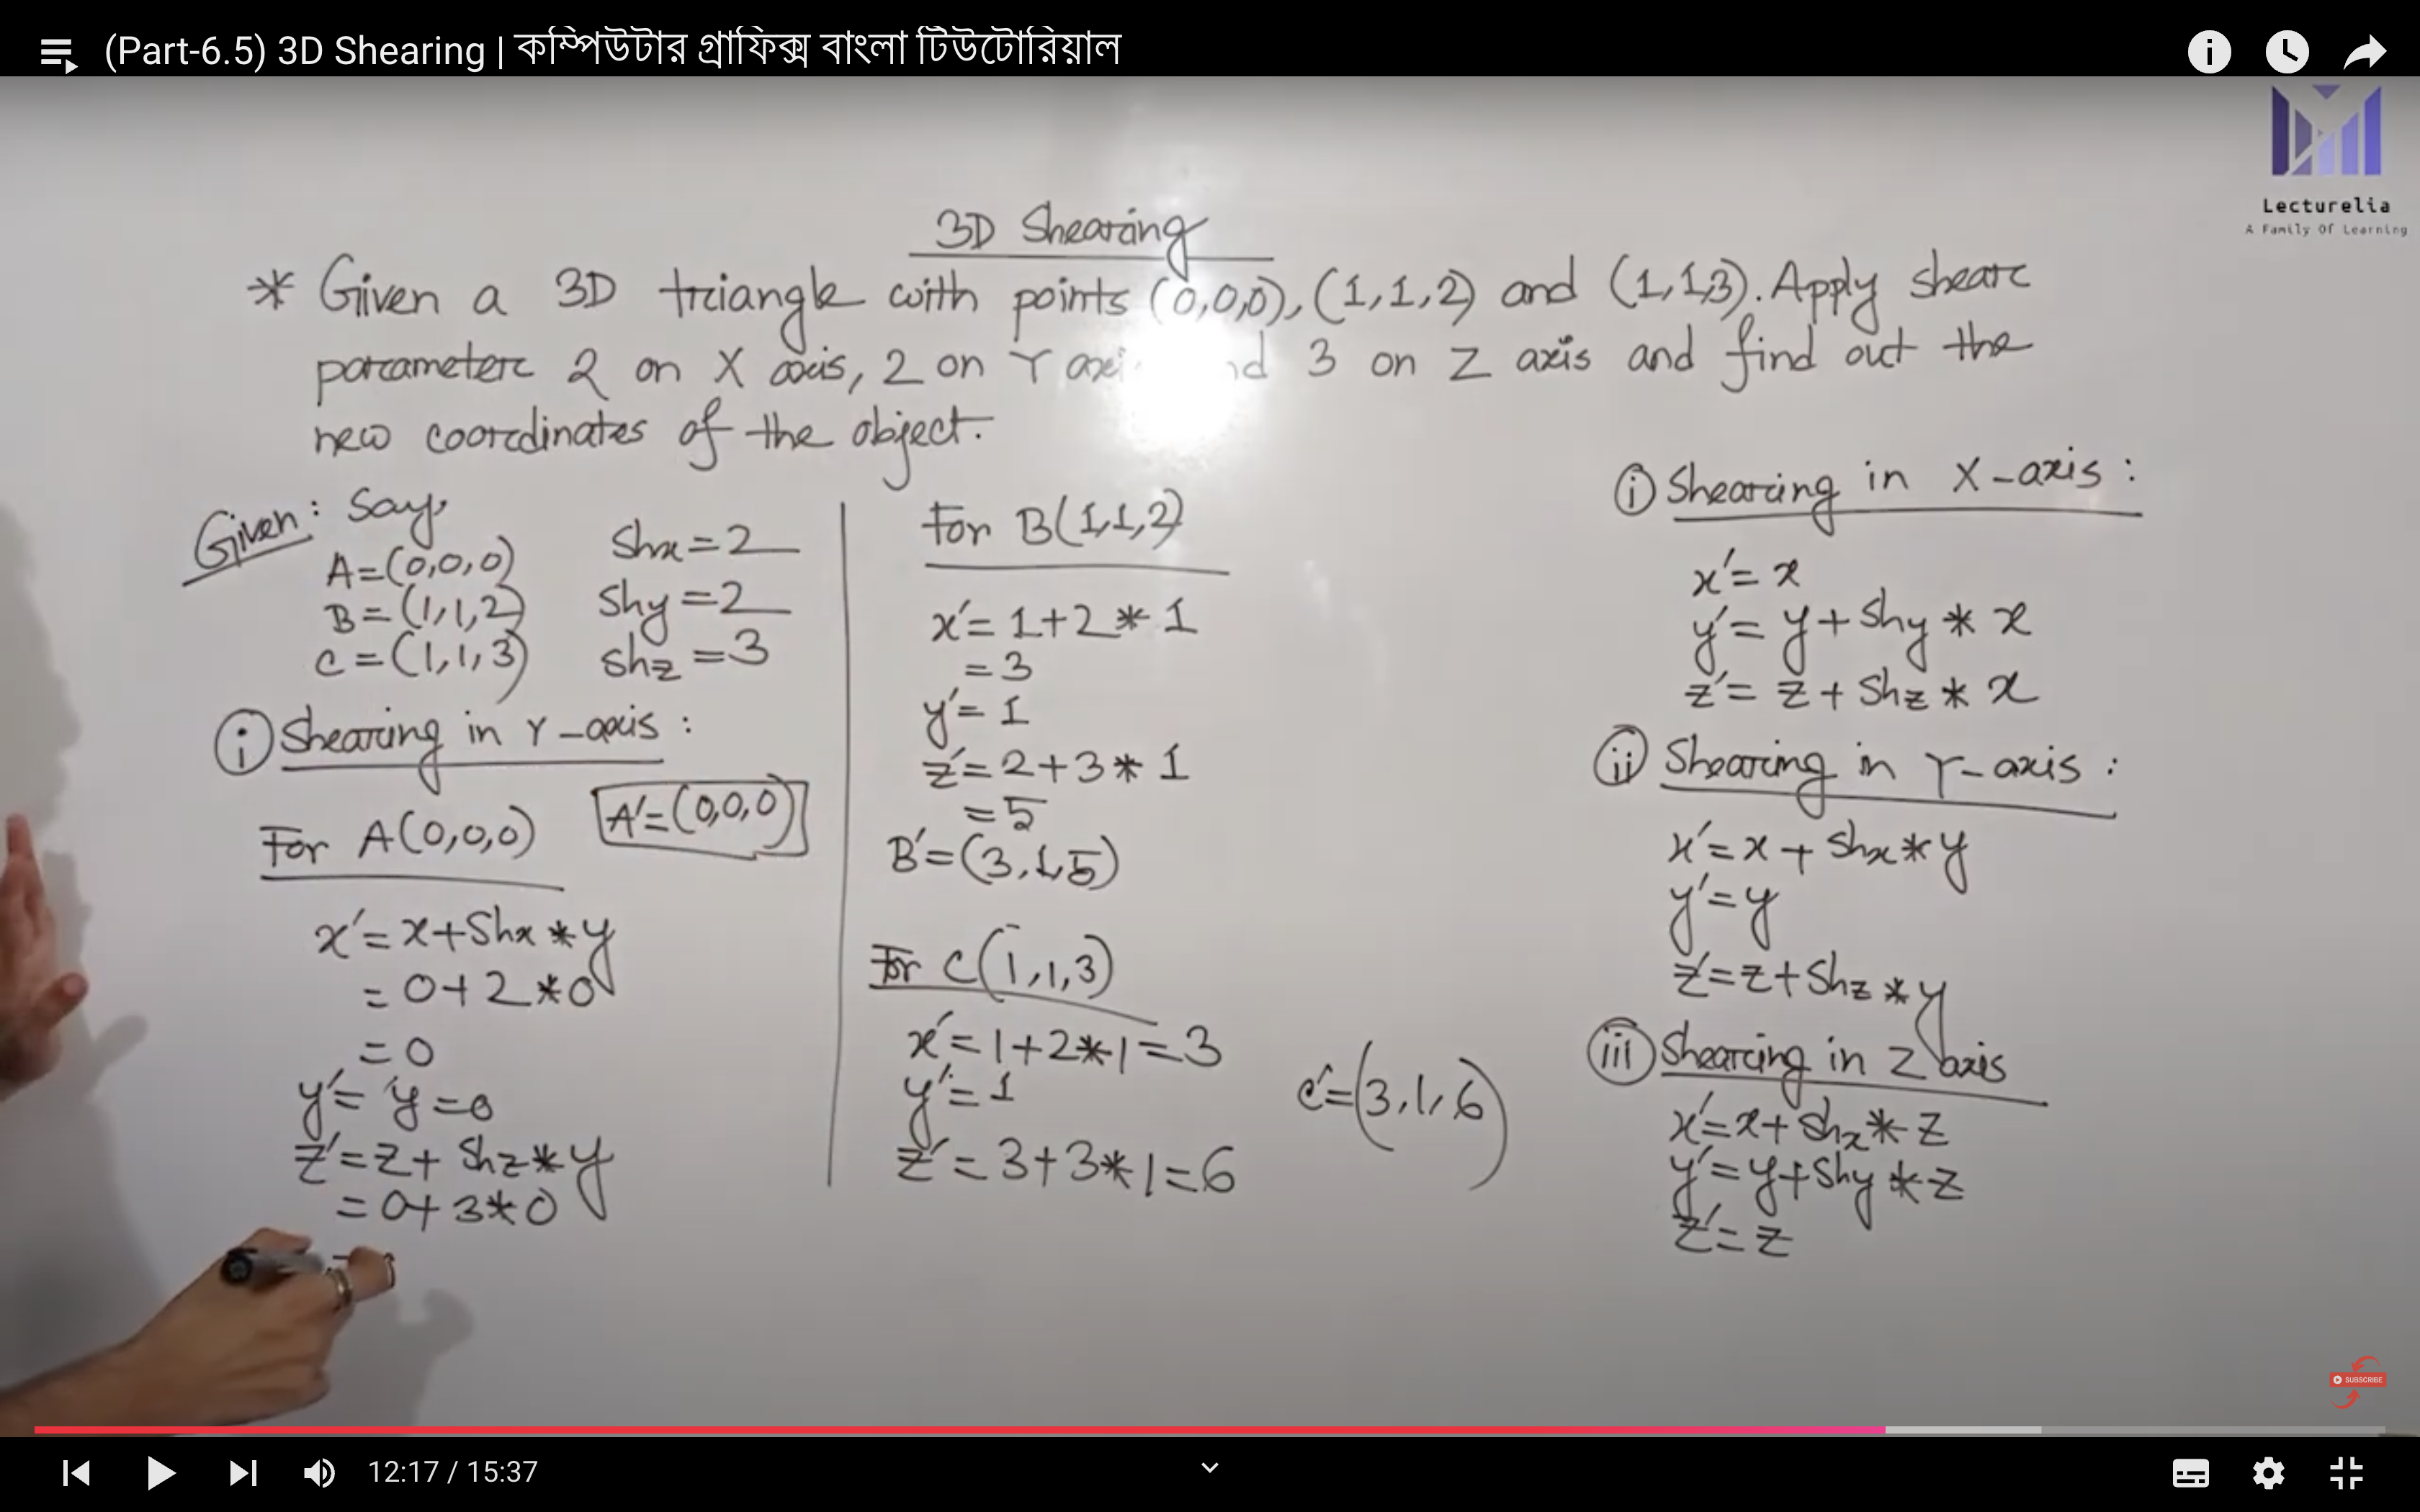 (Part-6.5) 3D Shearing | কম্পিউটার গ্রাফিক্স বাংলা টিউটোরিয়াল
Lecturelia
A Family Of Learning
3D Shearing
* Given a 3D triangle with points (0,0,0), (1,1,2) and (1,1,3). Apply shear
parameter 2 on X axis, 2 on Y axi nd 3 on Z axis and find out the
new coordinates of the object.
Given: Say,
A=(0,0,0)
B=(1,1,2)
C=(1,1,3)
Shx=2
Shy=2
Shz=3
(i) Shearing in Y-axis:
For A(0,0,0)
A'=(0,0,0)
x'=x+Shx*y
=0+2*0
=0
y'=y=0
z'=z+Shz*y
=0+3*0
For B(1,1,2)
x'=1+2*1
=3
y'=1
z'=2+3*1
=5
B'=(3,1,5)
For C(1,1,3)
x'=1+2*1=3
y'=1
z'=3+3*1=6
C'=(3,1,6)
(i) Shearing in X-axis:
x'=x
y'=y+Shy*x
z'=z+Shz*x
(ii) Shearing in Y-axis:
x'=x+Shx*y
y'=y
z'=z+Shz*y
(iii) Shearing in Z axis
x'=x+Shx*z
y'=y+Shy*z
z'=z
SUBSCRIBE
12:17 / 15:37